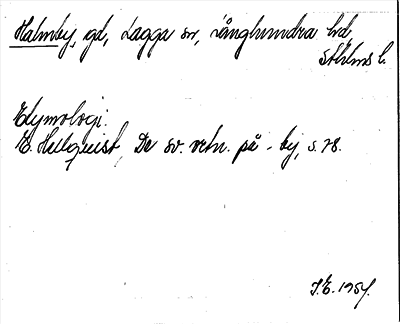 Halmby, gd, Lagga sn, Långhundra hd,
Sthlms l.
Etymologi.
E. Hellquist, De sv. ortn. på -by, s. 78.
J.E. 1954.